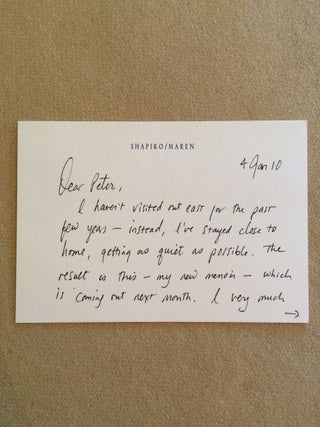 SHAPIRO/MAREN
4 Jan 10
Dear Peter,
I haven't visited out east for the past
few years – instead, I've stayed close to
home, getting as quiet as possible. The
result is this – my new memoir – which
is coming out next month. I very much
→